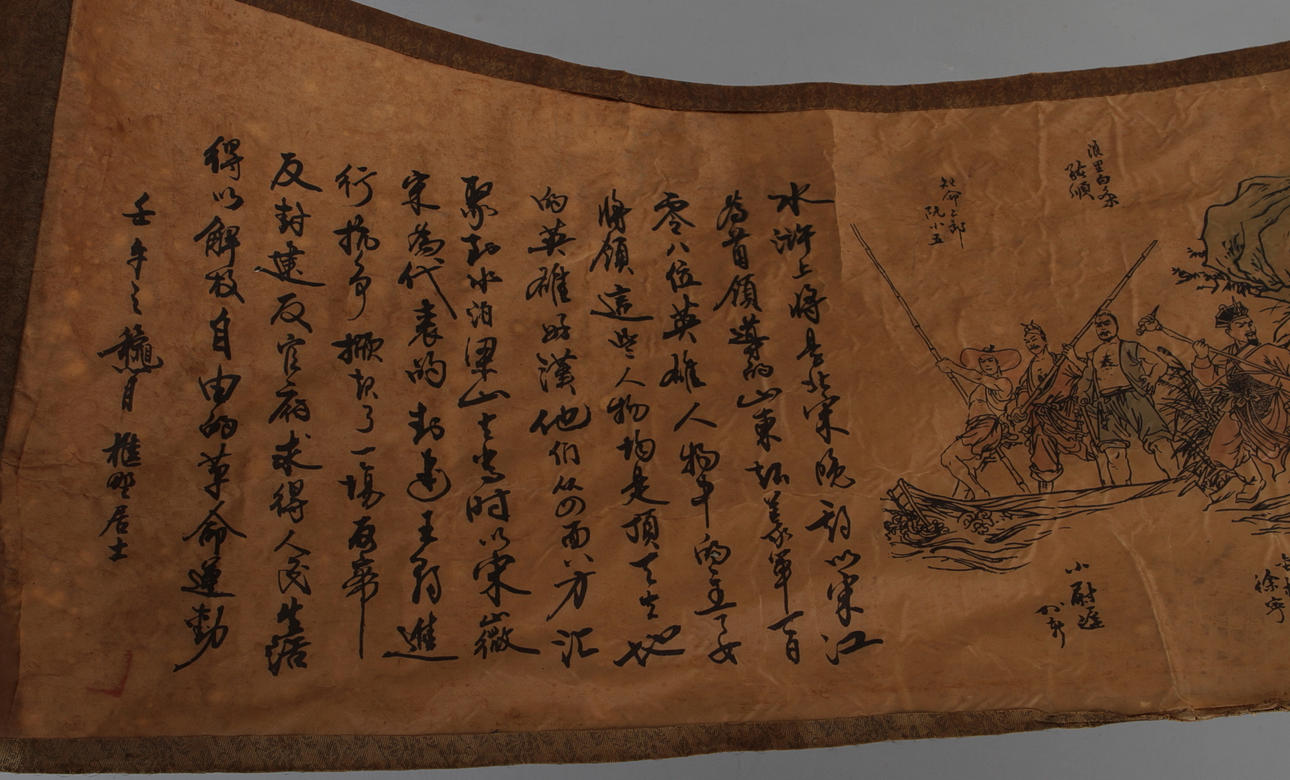 徐寧
浪里白條
張順
小尉遲
孫新
短命二郎
阮小五
水滸上將是北宋晚期以宋江
為首領導的山東起義軍一百
零八位英雄人物中的主要
將領這些人物均是頂天立地
的英雄好漢他們從四面八方
聚到水泊梁山當時以宋徽
宗為代表的封建王朝進
行抗爭掀起了一場反帝
反封建反官府求得人民生活
得以解放自由的革命運動
壬午之龝月樵野居士